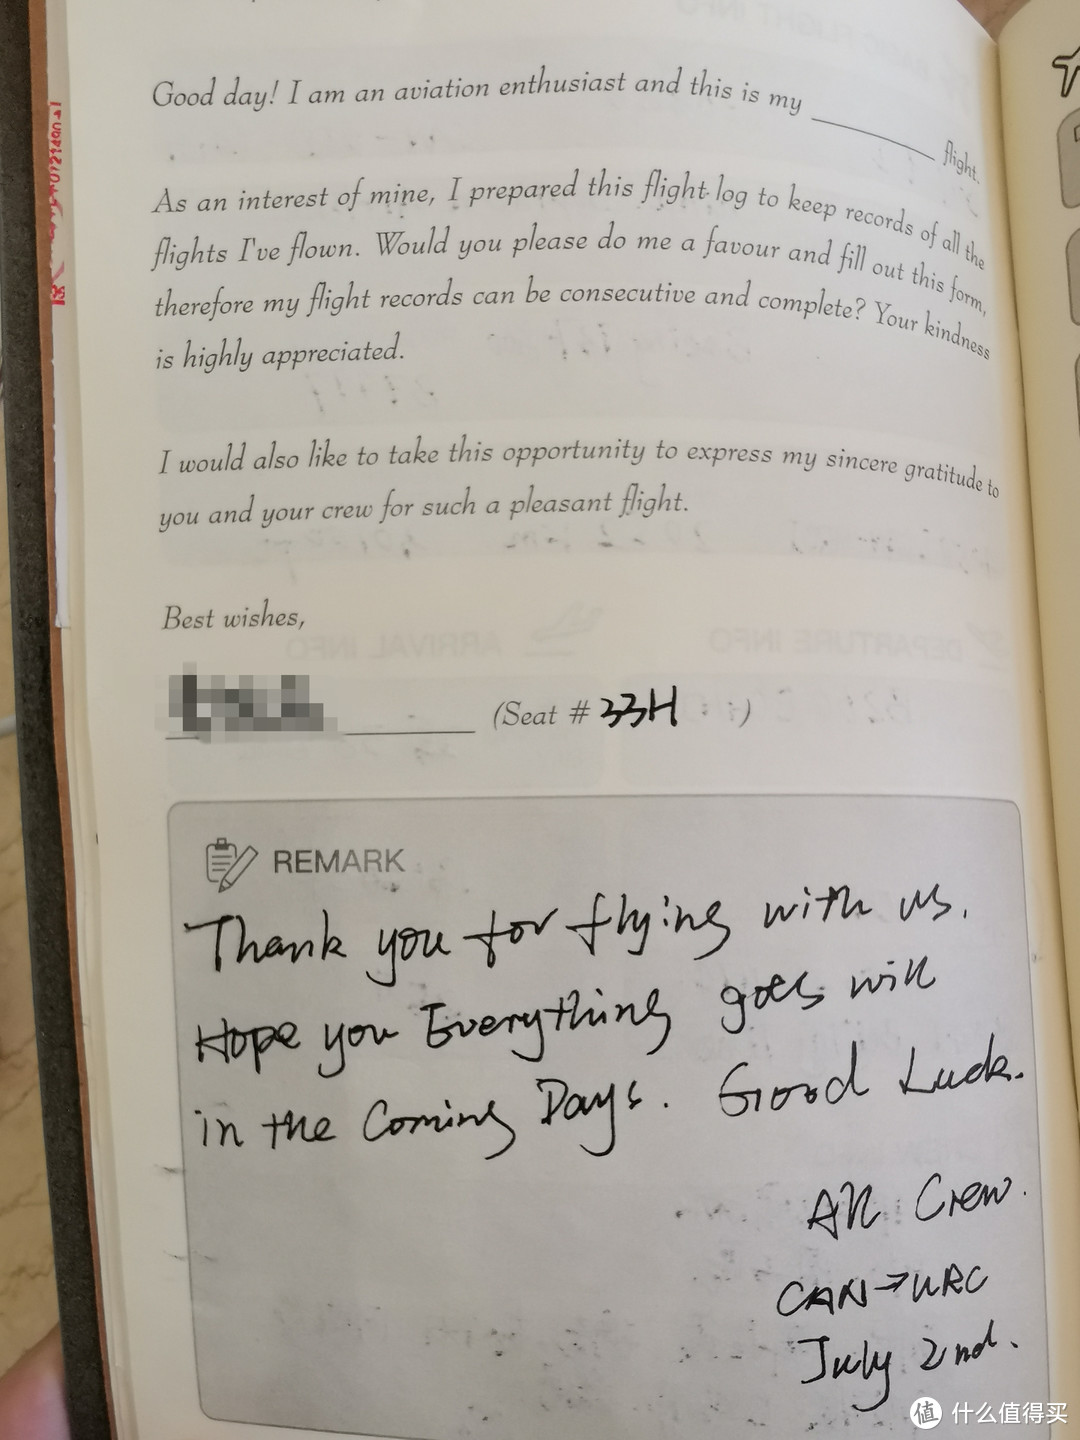 Good day! I am an aviation enthusiast and this is my ________ flight.
As an interest of mine, I prepared this flight log to keep records of all the
flights I've flown. Would you please do me a favour and fill out this form,
therefore my flight records can be consecutive and complete? Your kindness
is highly appreciated.
I would also like to take this opportunity to express my sincere gratitude to
you and your crew for such a pleasant flight.
Best wishes,
(Seat # 33H )
REMARK
Thank you for flying with us.
Hope you Everything goes will
in the Coming Days. Good Luck.
All Crew.
CAN→URC
July 2nd.
值 什么值得买